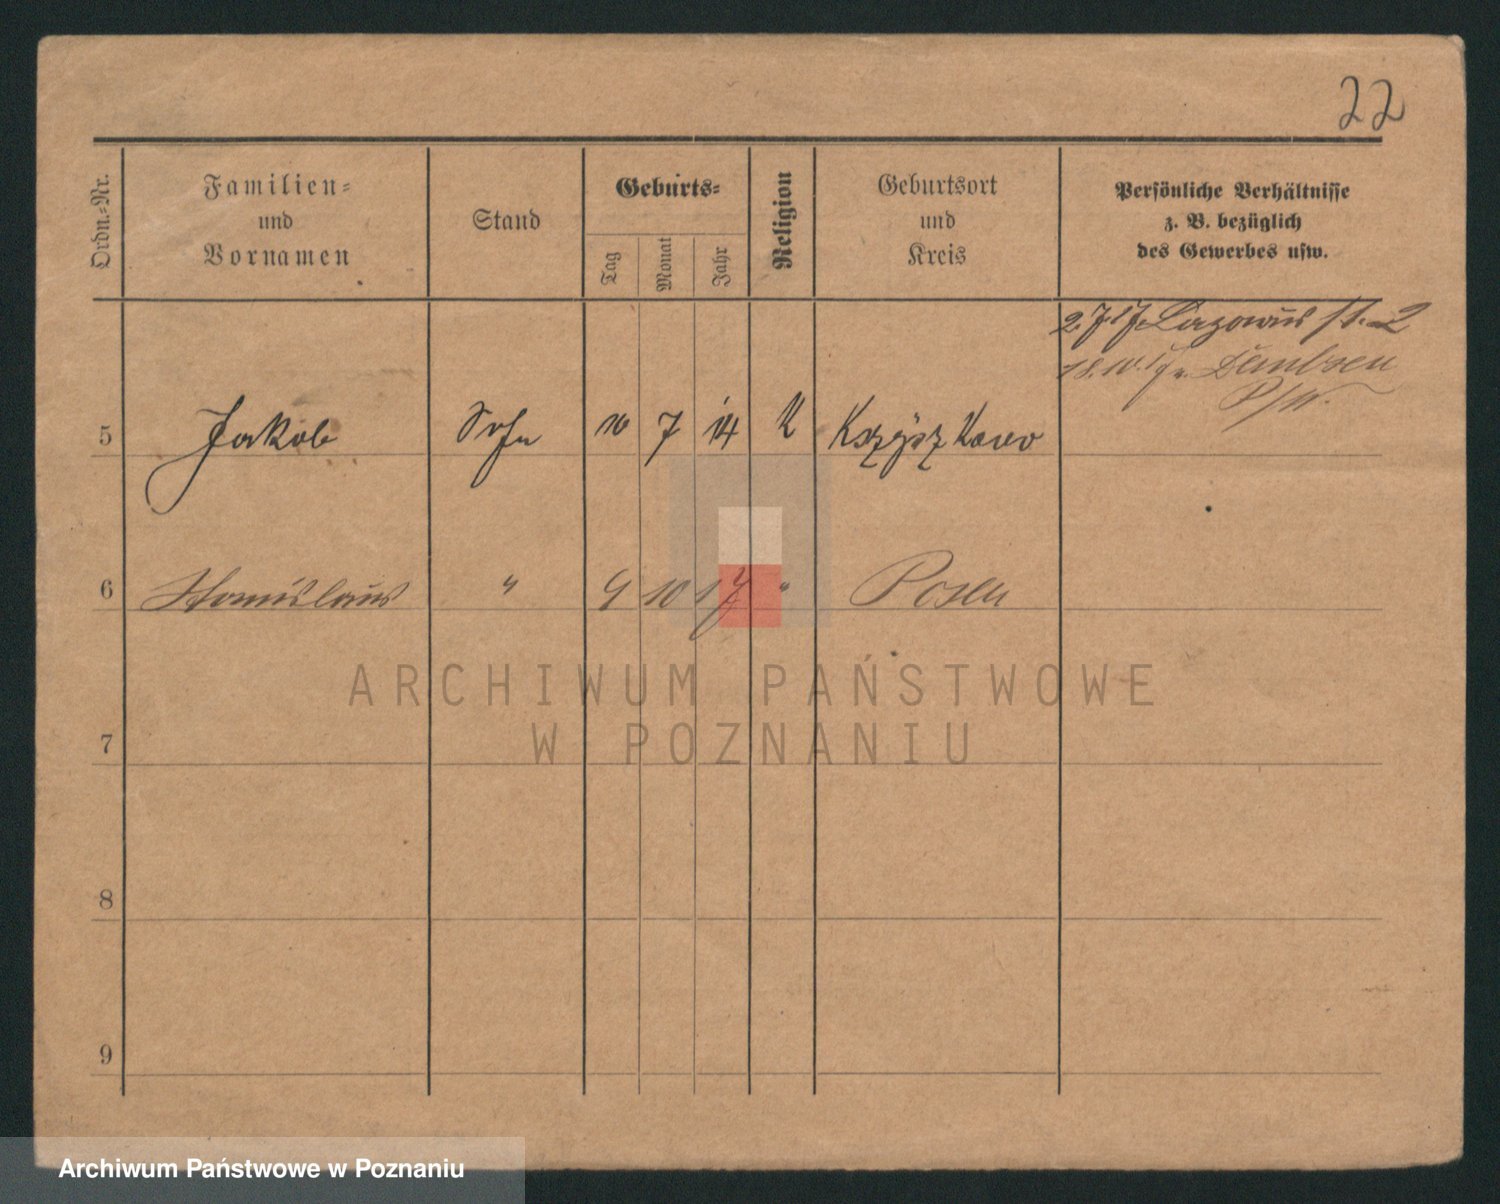 22
Ordn.-Nr.
Familien-
und
Vornamen
Stand
Geburts-
Tag
Monat
Jahr
Religion
Geburtsort
und
Kreis
Persönliche Verhältnisse
z. B. bezüglich
des Gewerbes usw.
2. 7. 17. Lazarus st. 2
18. 10. 17. Dembsen
5 Jakob Sohn 16 7 14 K
6 Stanislaus " 9 10 17 " Posen
7
8
9
ARCHIWUM PAŃSTWOWE
W POZNANIU
Archiwum Państwowe w Poznaniu